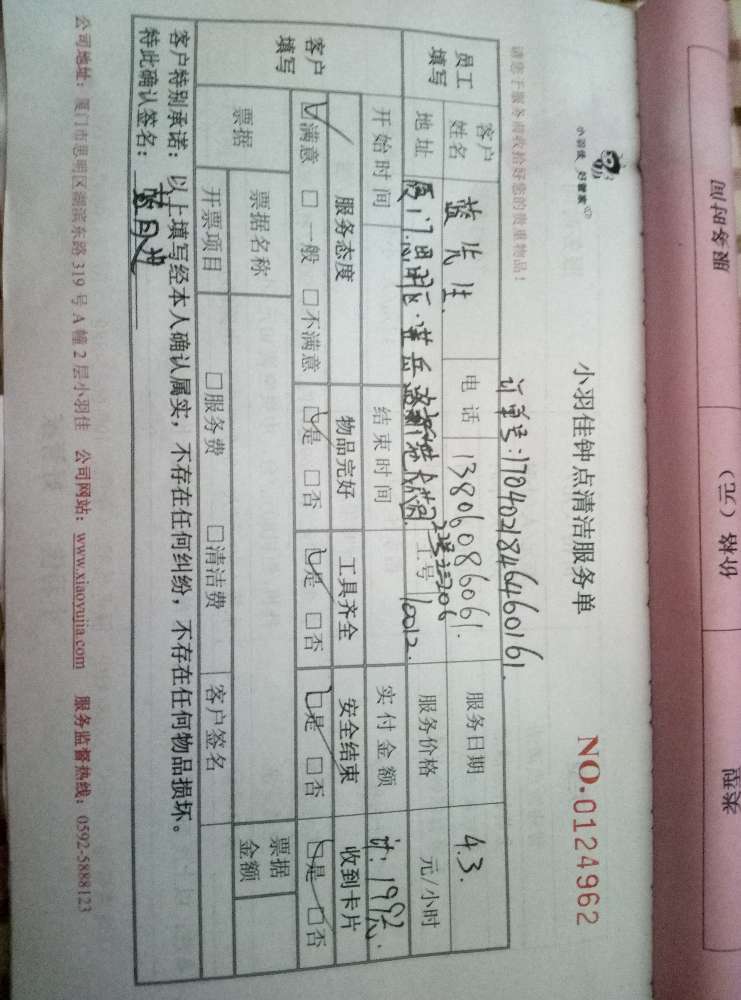 小羽佳 好管家
请您于服务前收拾好您的贵重物品!
小羽佳钟点清洁服务单
NO.0124962
订单号:1704021846460161.
员工填写
客户姓名 蓝先生. 电话 13806086061. 服务日期 4.3.
地址 厦门思明区 工号 10012. 服务价格 元/小时
开始时间 结束时间 实付金额 计:199元.
客户填写
服务态度 物品完好 工具齐全 安全结束 收到卡片
☑满意 □一般 □不满意 ☑是 □否 ☑是 □否 ☑是 □否 ☑是 □否
票据 票据名称 票据金额
开票项目 □服务费 □清洁费 客户签名
客户特别承诺:以上填写经本人确认属实,不存在任何纠纷,不存在任何物品损坏。
特此确认签名:
公司地址:厦门市思明区湖滨东路 319 号 A 幢 2 层小羽佳 公司网站:www.xiaoyujia.com 服务监督热线:0592-5888123
服务时间
价格(元)
类型